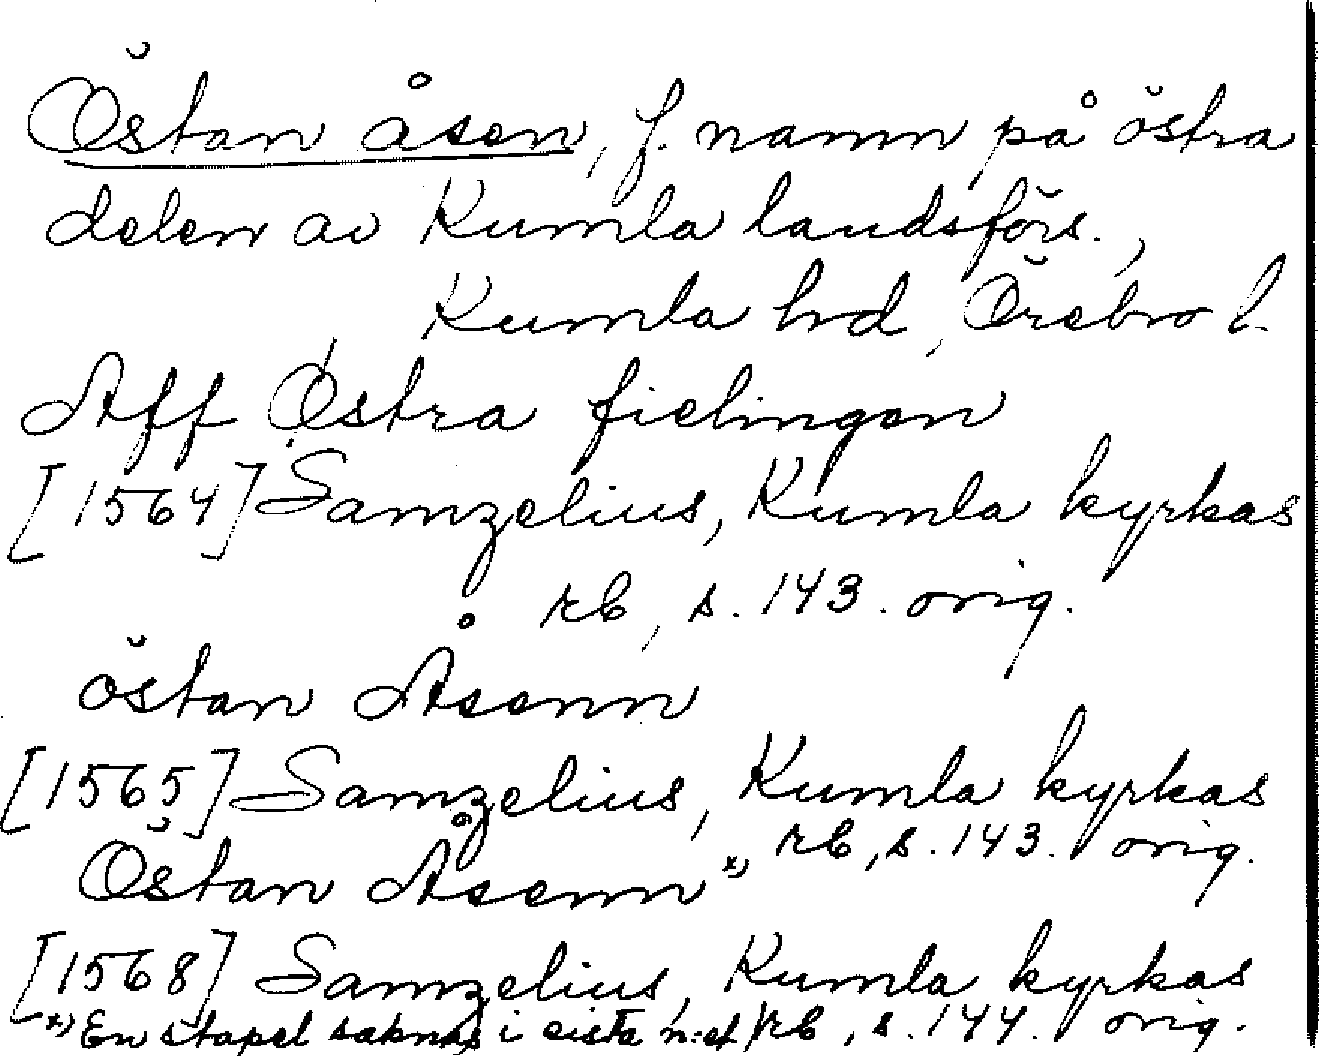 Östan åsen, f. namn på östra
delen av Kumla landsförs.,
Kumla hd, Örebro l.
Aff Østra fielingen
[1564] Samzelius, Kumla kyrkas
rb, s. 143. orig.
östan Åsenn
[1565] Samzelius, Kumla kyrkas
rb, s. 143. orig.
Östan Åsenn *)
[1568] Samzelius, Kumla kyrkas
rb, s. 144. orig.
*) En stapel saknas i sista n:et